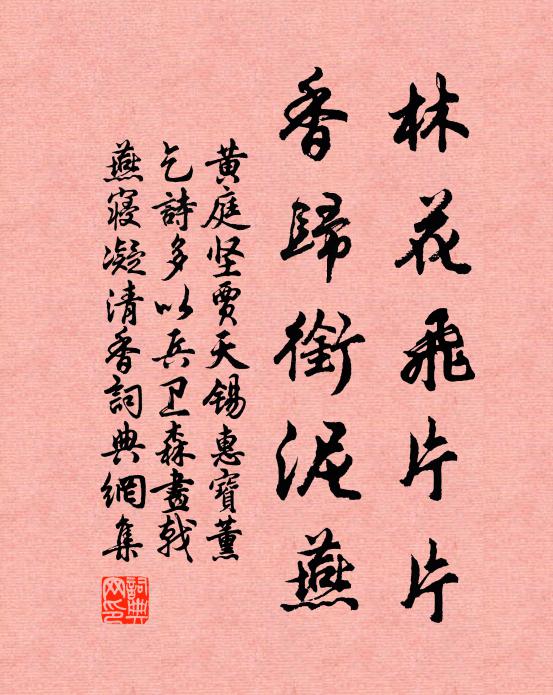 林花飛片片
香歸銜泥燕
黄庭坚賈天锡惠寶薰
乞詩多以兵卫森畫戟
燕寝凝清香詞典網集
詞典网印